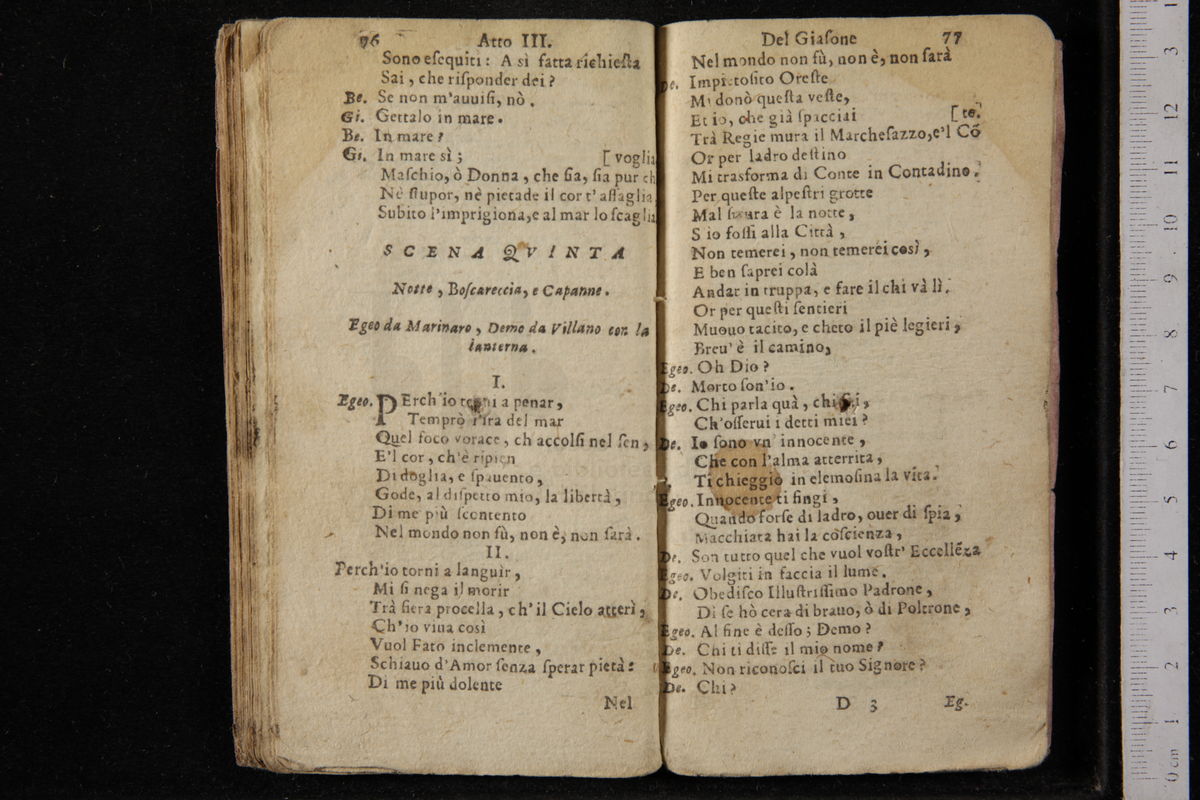 76 Atto III.
Sono eſequiti: A sì fatta richieſta
Sai, che riſponder dei?
Be. Se non m'auuiſi, nò.
Gi. Gettalo in mare.
Be. In mare?
Gi. In mare sì; [voglia
Maſchio, ò Donna, che ſia, ſia pur ch
Nè ſtupor, nè pietade il cor t'aſſaglia
Subito l'imprigiona, e al mar lo ſcaglia
SCENA QVINTA
Notte, Boſcareccia, e Capanne.
Egeo da Marinaro, Demo da Villano con la
lanterna.
I.
Egeo. PErch'io torni a penar,
Temprò l'ira del mar
Quel foco vorace, ch'accolſi nel ſen,
E'l cor, ch'è ripien
Di doglia, e ſpauento,
Gode, al diſpetto mio, la libertà,
Di me più ſcontento
Nel mondo non fù, non è, non ſarà.
II.
Perch'io torni a languir,
Mi ſi nega il morir
Trà fiera procella, ch'il Cielo atterì,
Ch'io viua così
Vuol Fato inclemente,
Schiauo d'Amor ſenza ſperar pietà:
Di me più dolente
Nel
Del Giaſone 77
Nel mondo non fù, non è, non ſarà
De. Impietoſito Oreſte
Mi donò queſta veſte,
Et io, che già ſpacciai [te.
Trà Regie mura il Marcheſazzo, e'l Cō
Or per ladro deſtino
Mi trasforma di Conte in Contadino.
Per queſte alpeſtri grotte
Mal ſicura è la notte,
S io foſſi alla Città,
Non temerei, non temerei così,
E ben ſaprei colà
Andar in truppa, e fare il chi và lì.
Or per queſti ſentieri
Muouo tacito, e cheto il piè legieri,
Breu' è il camino,
Egeo. Oh Dio?
De. Morto ſon'io.
Egeo. Chi parla quà, chi ſei,
Ch'oſſerui i detti miei?
De. Io ſono vn' innocente,
Che con l'alma atterrita,
Ti chieggio in elemoſina la vita.
Egeo. Innocente ti fingi,
Quando forſe di ladro, ouer di ſpia,
Macchiata hai la coſcienza,
De. Son tutto quel che vuol voſtr' Eccellēza
Egeo. Volgiti in faccia il lume.
De. Obediſco Illuſtriſſimo Padrone,
Di ſe hò cera di brauo, ò di Poltrone,
Egeo. Al fine è deſſo; Demo?
De. Chi ti diſſe il mio nome?
Egeo. Non riconoſci il tuo Signore?
De. Chi?
D 3 Eg.